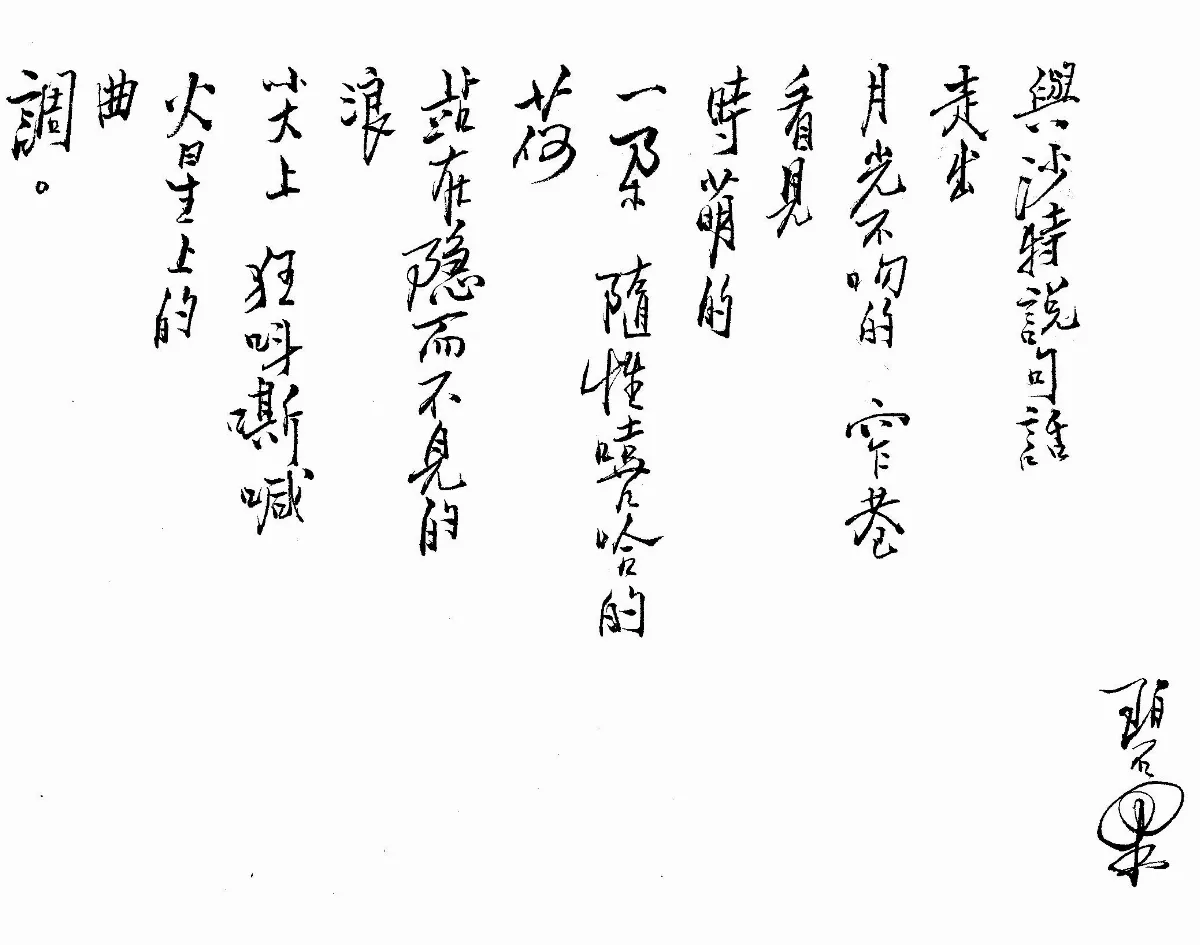 碧果
與沙特說句話
走出
月光不吻的 窄巷
看見
時萌的
一朵 隨性嘻哈的
荷
站在隱而不見的
浪
尖上 狂叫嘶喊
火星上的
曲
調。